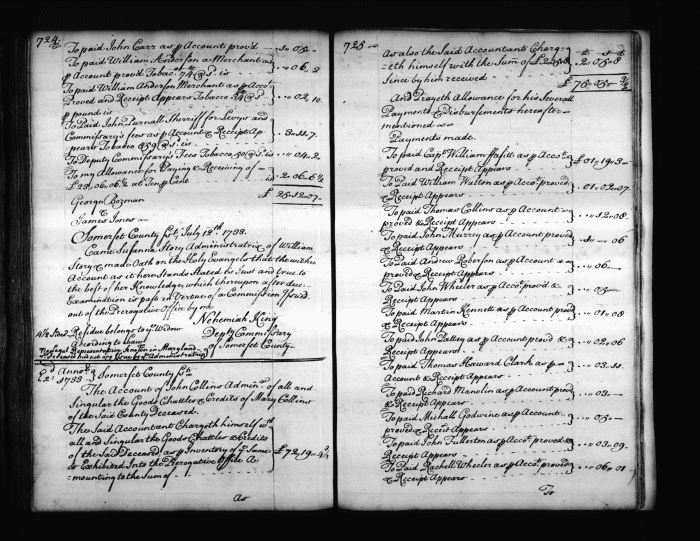 724
To paid John Carr as p Account prov'd - - " 10 " 05 " -
To paid William Anderson Merchant as
p Account proved Tobac: 74 @ 1d. is - - " " 06 " 2
To paid William Anderson Merchant as p Acco:t
Proved and Receipt Appears Tobacco @ 1d
p pound is - - " " 02 " 10
To Paid John Purnall Sherriff for Levys and
Commissary's fees as p Account & Receipt Ap
pears Tobacco 859 @ 1d. is - - 3 " 11 " 7
To Deputy Commissary's Fees Tobacco 50 @ 1d. is - - " " 04 " 2
To my Allowance for Paying & Receiving of
£ 23, 06, 06½ at Ten p Cent - - 2 " 06 " 6½
£ 25 " 12 " 07
George Bozman
&
James Jones
Somerset County Sct July 13th 1733.
Came Susanna Story Administratrix of William
Story & made Oath on the Holy Evangels that the within
Account as it here Stands Stated is Just and true to
the best of her Knowledge, which thereupon after due
Examination is past in Virtue of a Commission Issu'd
out of the Prerogative Office by me
Nehemiah King
Depty Commissary
of Somerset County
Residue belongs to ye Widow
According to Law
No Legal Representatives known in Maryland
Deceased had not any Issue by ye Administratrix
Ed Annoq
1733 } Somerset County Sct
The Account of John Collins Adminr. of all and
Singular the Goods Chattles & Credits of Mary Collins
of the Said County Deceased.
The Said Accountant Chargeth himself with
all and Singular the Goods Chattles & Credits
of the Said Deceased as p Inventory of ye Same
Exhibited Into the Prerogative Office A-
mounting to the Sum of - - £ 72 " 19 "
As
725
As also the Said Accountant Charg-
eth himself with the Sum of £ 2:5:8
Since by him received - - 2 " 05 " 8
£ 75 " 05 "
And Prayeth Allowance for his Severall
Payments & Disbursements hereafter
mentioned
Payments made.
To paid Capt. William ffasitt as p Accot.
proved and Receipt Appears - - £ 01 " 19 " 3
To Paid William Walton as p Accot. proved
& Receipt Appears - - 01 " 02 " 07
To paid Thomas Collins as p Account
proved & Receipt Appears - - " " 12 " 08
To paid John Murrey as p Account prov'd
& Receipt Appears - - " 10 " 06
To paid Andrew Roberson as p Account
proved & Receipt Appears - - " " 06 " -
To Paid John Wheeler as p Accot. prov'd &
Receipt Appears - - " " 05 " -
To paid Martin Kennett as p Account prov'd
& Receipt Appears - - 01 " 08
To paid John Pattey as p Account proved &
Receipt Appears - - " 02 " 06
To paid Thomas Haward Clark as p
Account & Receipt Appears - - " 03 " 11
To paid Richard Manolin as p Account prov'd
& Receipt Appears - - " 03 " -
To paid Michall Godwine as p Account
proved & Receit Appears - - " 05 " -
To paid John Fullerton as p Accot. proved &
Receipt Appears - - " 03 " 09
To Paid Rachell Wheeler as p Accot. proved
& Receipt Appears - - " 06 " 01
To